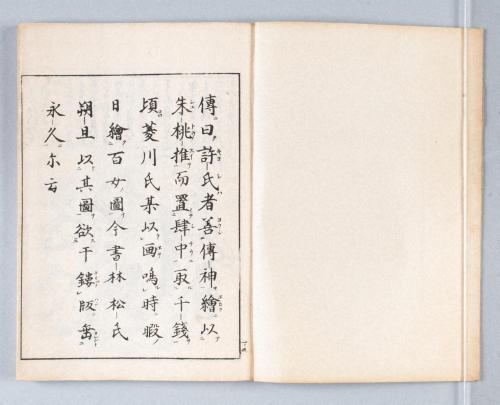 傳曰許氏者善傳神繪以
朱桃推而置肆中取千錢
頃菱川氏某以画鳴時暇
日繪百女圖今書林松氏
朔旦以其圖欲干鏤版垂
永久尓云